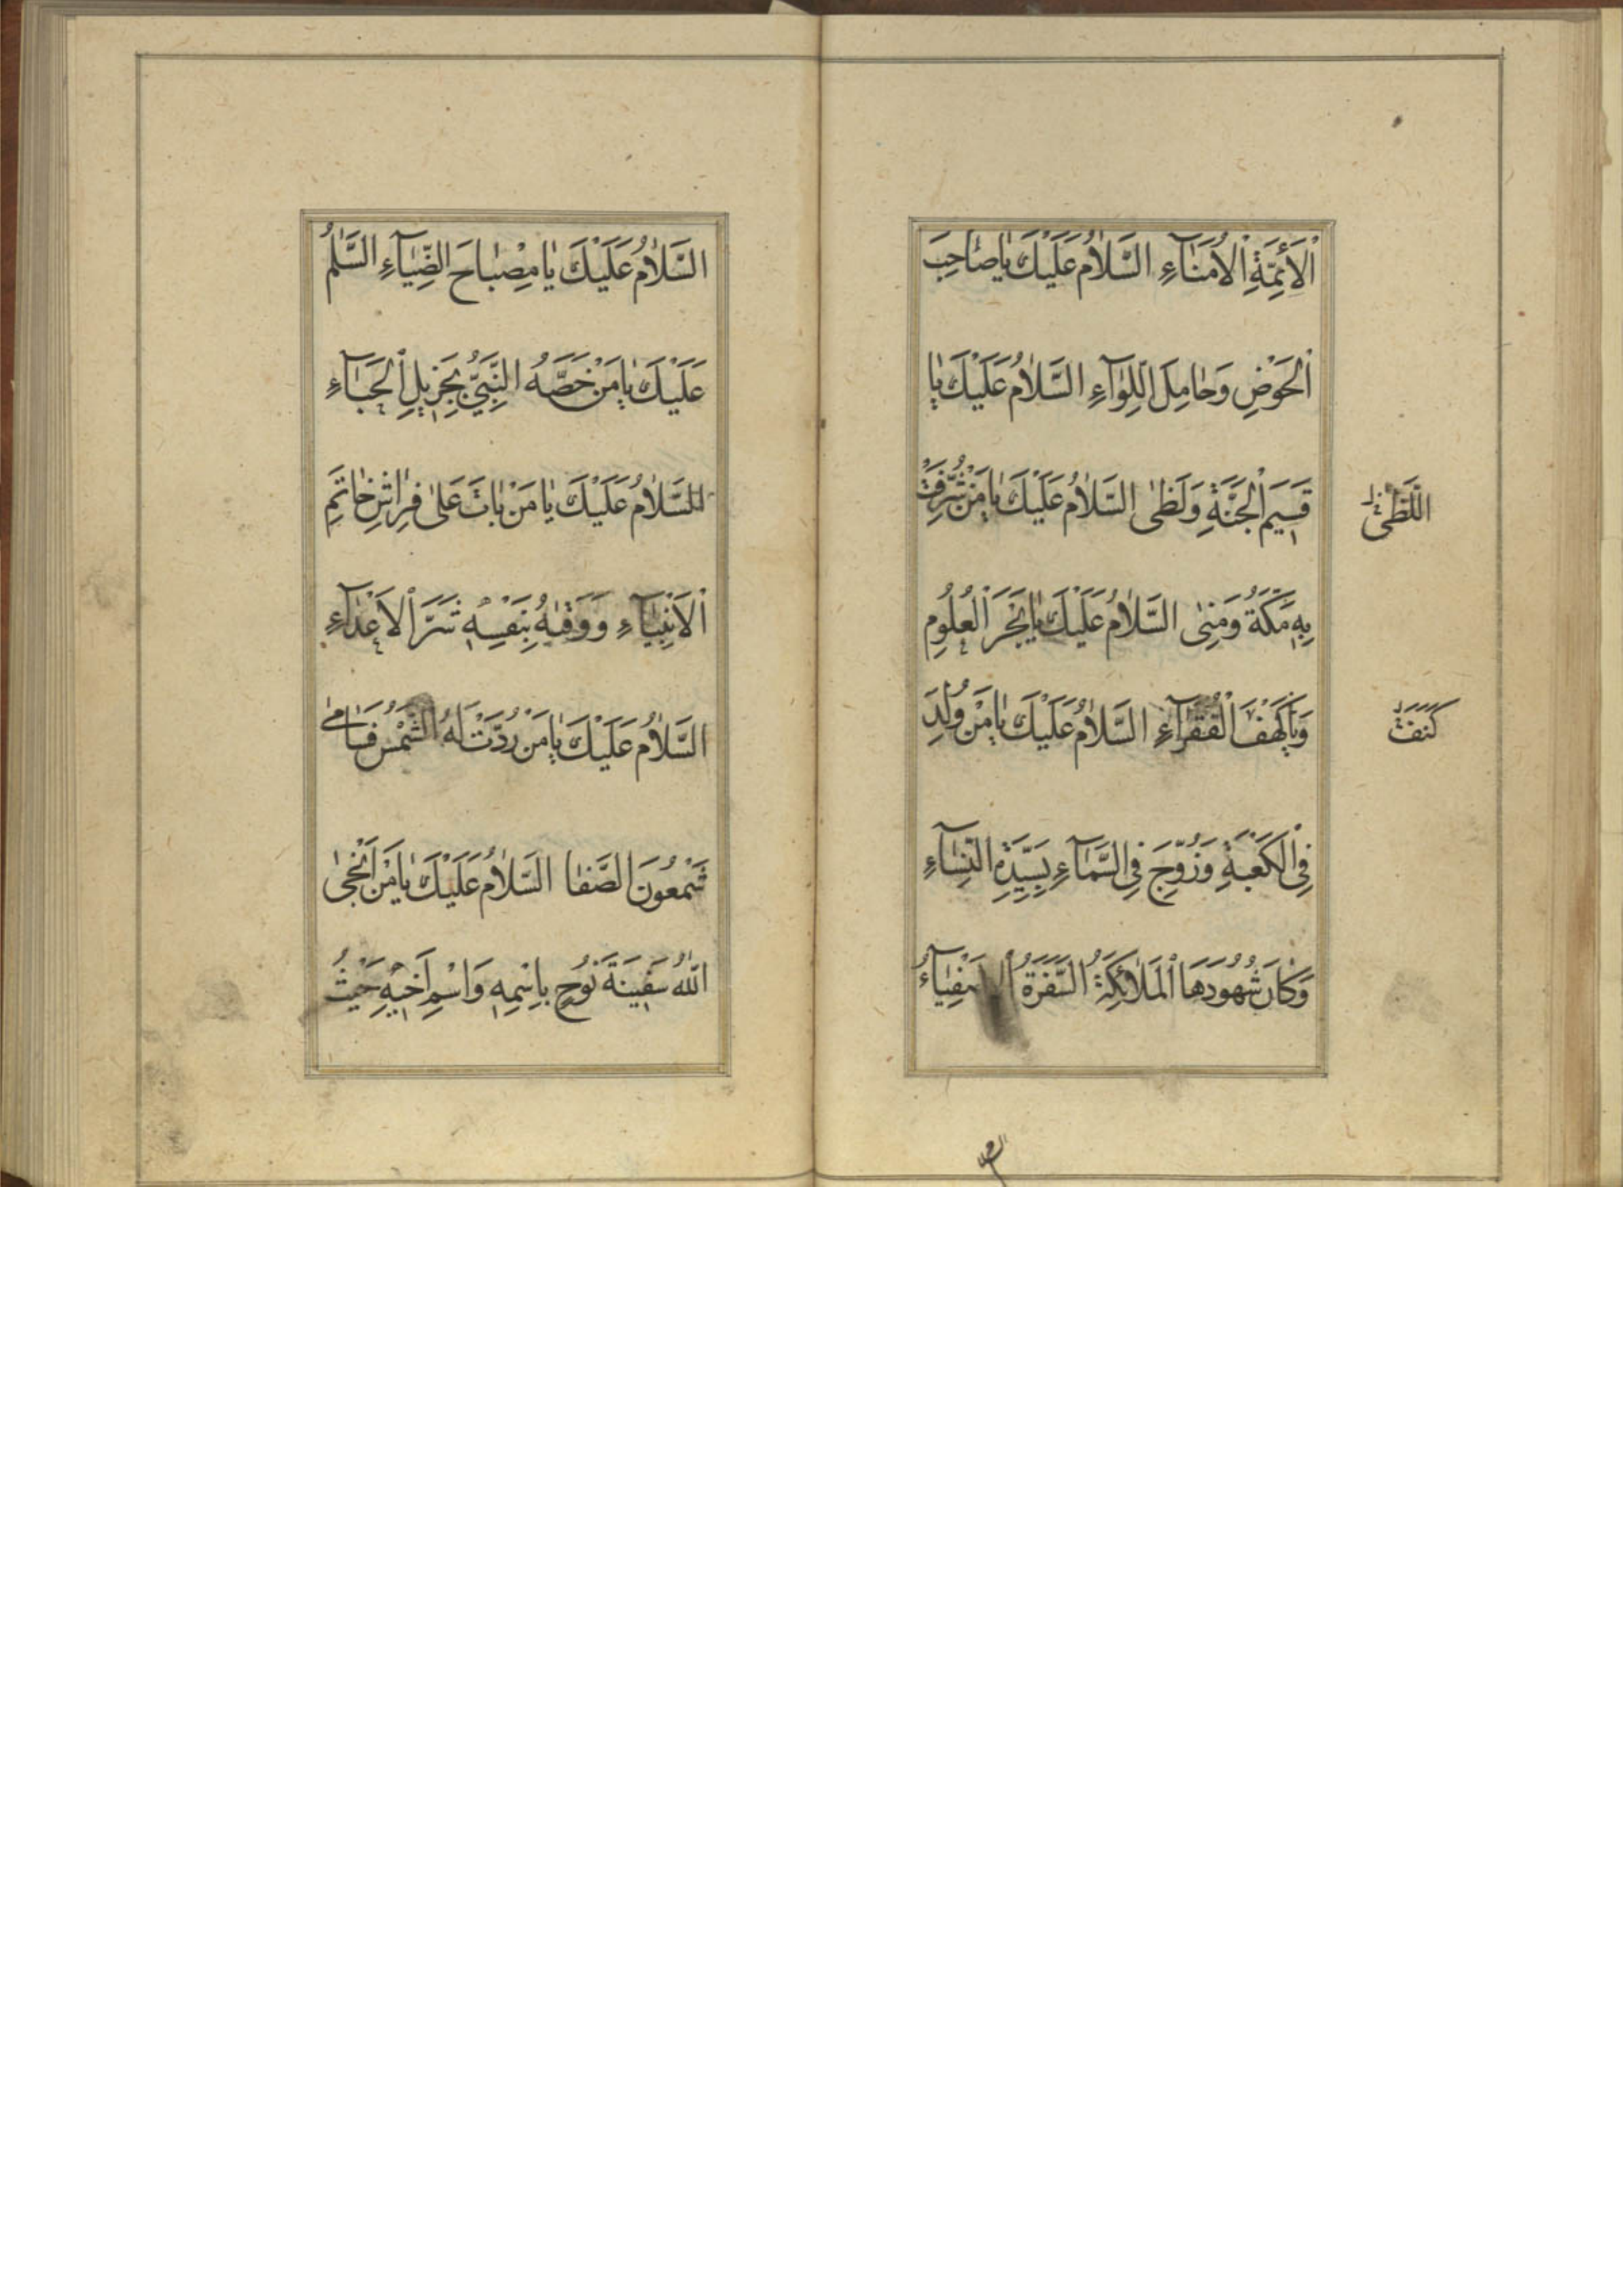 اْلأَئِمَّةِ اْلاُمَنٰآءِ السَّلاٰمُ عَلَيْكَ يٰا صٰاحِبَ
اْلحَوْضِ وَحٰامِلَ اللِّوٰآءِ السَّلاٰمُ عَلَيْكَ يٰا
قَسِيَم اْلجَنَّةِ وَلَظٰى السَّلاٰمُ عَلَيْكَ يٰا مَنْ شُرِّفَتْ
اللَّظٰى
بِهِ مَكَّةُ وَمِنٰى السَّلاٰمُ عَلَيْكَ يٰا بَحْرَ اْلعُلُومِ
وَيٰا كَهْفَ الْفُقَرٰآءِ السَّلاٰمُ عَلَيْكَ يٰا مَنْ وُلِدَ
كَنَفَ
فِى الْكَعْبَةِ وَزُوِّجَ فِى السَّمٰآءِ بِسَيِّدَةِ النِّسٰآءِ
وَكٰانَ شُهُودَهَا اْلمَلاٰئِكَةُ السَّفَرَةُ اْلاَصْفِيٰآءُ
السَّلاٰمُ عَلَيْكَ يٰا مِصْبٰاحَ الضِّيٰآءِ السَّلٰمُ
عَلَيْكَ يٰا مَنْ خَصَّهُ النَّبِيُّ بِجَزِيلِ اْلحَبٰآءِ
السَّلاٰمُ عَلَيْكَ يٰا مَنْ بٰاتَ عَلىٰ فِرٰاشِ خٰاتَمِ
اْلاَنْبِيٰآءِ وَوَقٰيهُ بِنَفْسِهِ شَرَّ اْلاَعْدٰآءِ
السَّلاٰمُ عَلَيْكَ يٰا مَنْ رُدَّتْ لَهُ الشَّمْسُ فَسٰامىٰ
شَمْعُونَ الصَّفٰا السَّلاٰمُ عَلَيْكَ يٰا مَنْ اَنْجىٰ
اللّٰهُ سَفِينَةَ نُوحٍ بِاسْمِهِ وَاسْمِ اَخِيهِ حَيْثُ